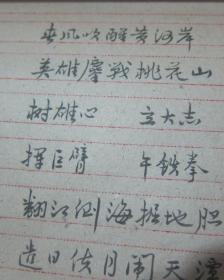 春风吹醒黄河岸
英雄鏖战桃花山
树雄心 立大志
挥巨臂 午铁拳
翻江倒海掘地胆
造日供月闹天